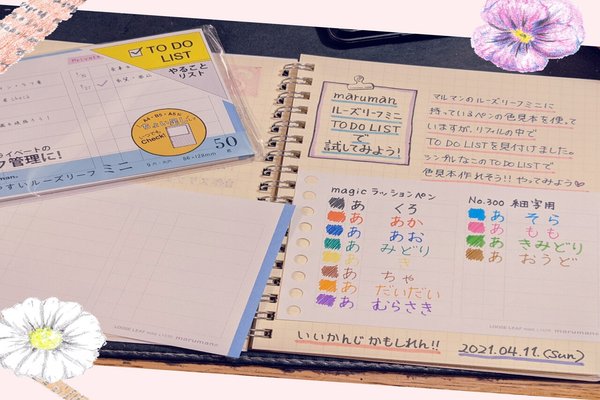 TO DO
LIST
やること
リスト
Private
ちょい足し
いつでも
Check!
ライベートの
管理に!
ルーズリーフ ミニ
86×128mm
50
LOOSE LEAF
maruman
maruman
ルーズリーフミニ
TO DO LIST
で
試してみよう!
マルマンのルーズリーフミニに
持っているペンの色見本を使って
いますが、リフィルの中で
TO DO LISTを見付けました。
シンプルなこのTO DO LISTで
色見本作れそう!! やってみよう♡
magic ラッションペン
あ くろ
あ あか
あ あお
あ みどり
あ き
あ ちゃ
あ だいだい
あ むらさき
No.300 細字用
あ そら
あ もも
あ きみどり
あ おうど
LOOSE LEAF
maruman
いいかんじかもしれん!!
2021.04.11.(sun)